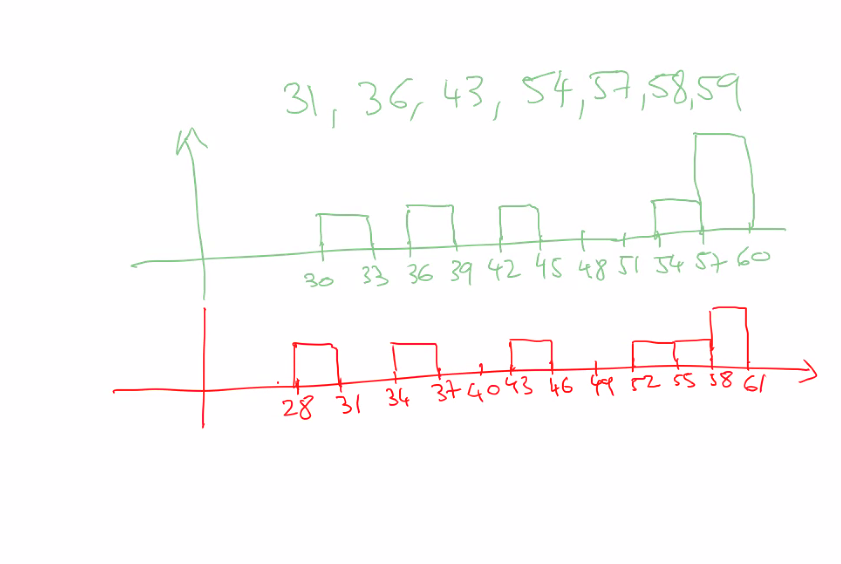 31, 36, 43, 54, 57, 58, 59
30 33 36 39 42 45 48 51 54 57 60
28 31 34 37 40 43 46 49 52 55 58 61